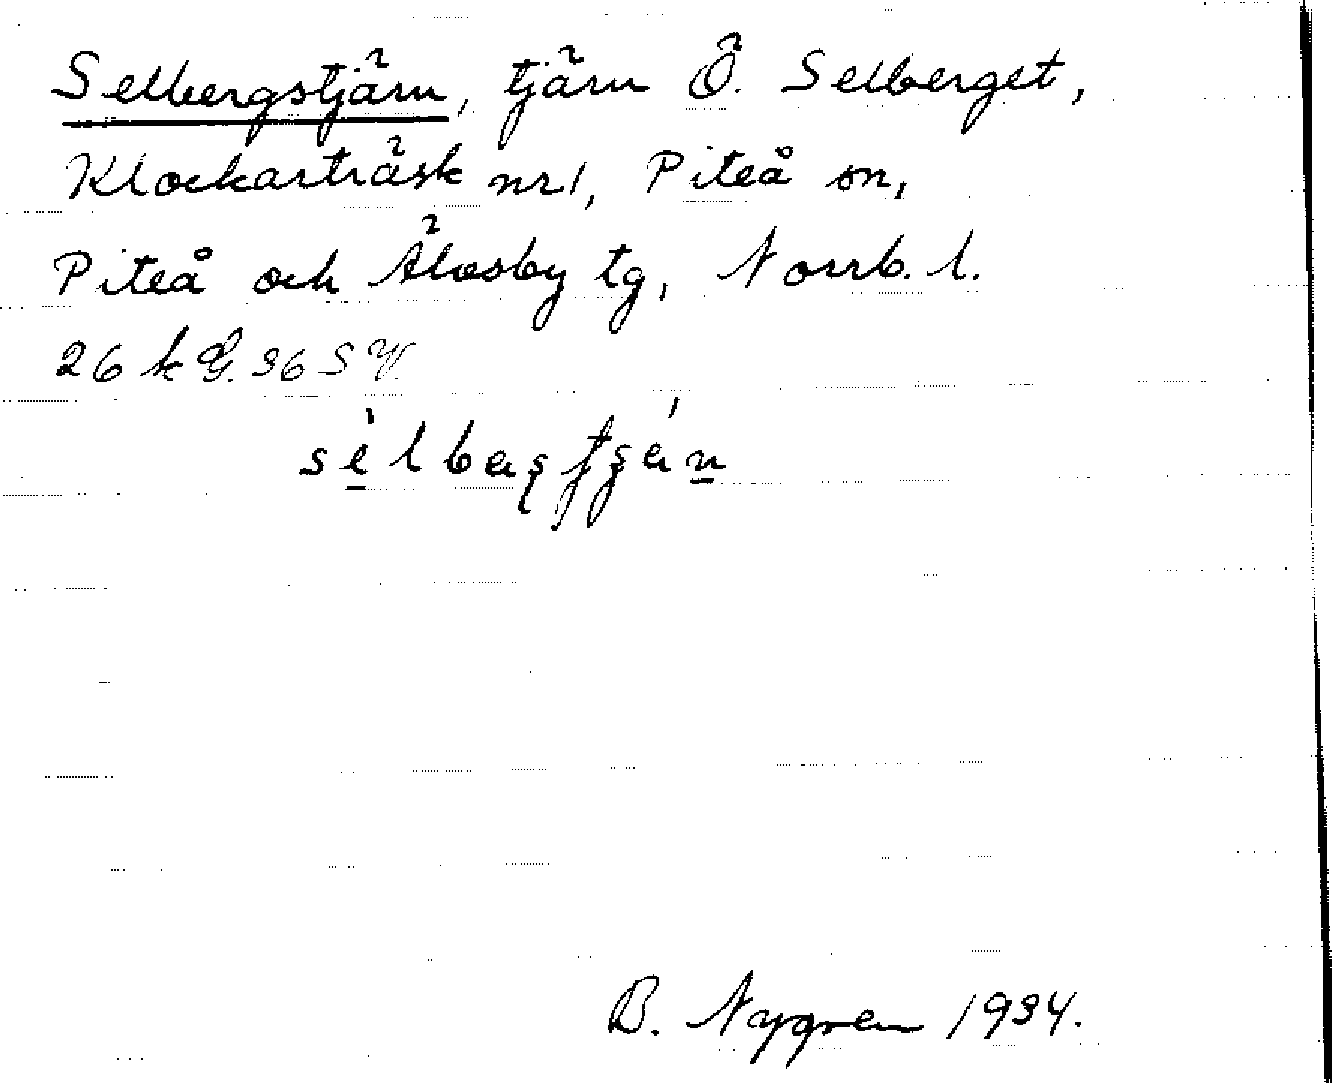 Selbergstjärn, tjärn Ö. Selberget,
Klockarträsk nr 1, Piteå sn,
Piteå och Älvsby tg, Norrb. l.
26 k G. 36 S V.
B. Nygren 1934.